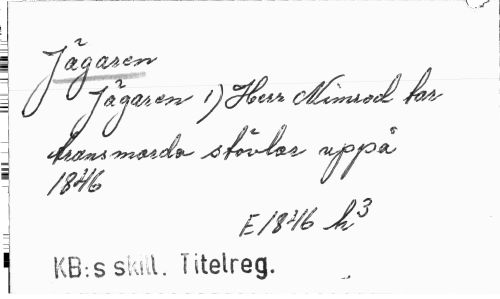 Jägaren
Jägaren 1) Herr Nimrod tar
transmorda stövlar uppå
1846
E 1846 h3
KB:s skill. Titelreg.